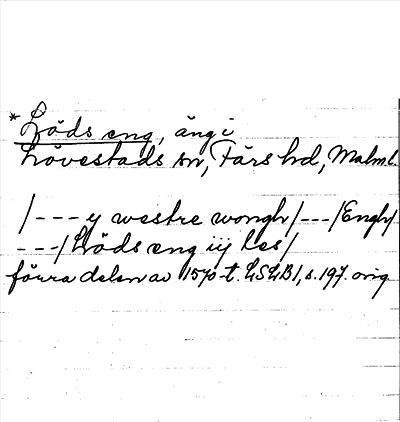 *Löds eng, äng i
Lövestads sn, Färs hd, Malm.l.
/--- y westre wongh/---/Engh/
---/Löds eng iij les/
förra delen av 1570-t. LSLB1, s. 197. orig